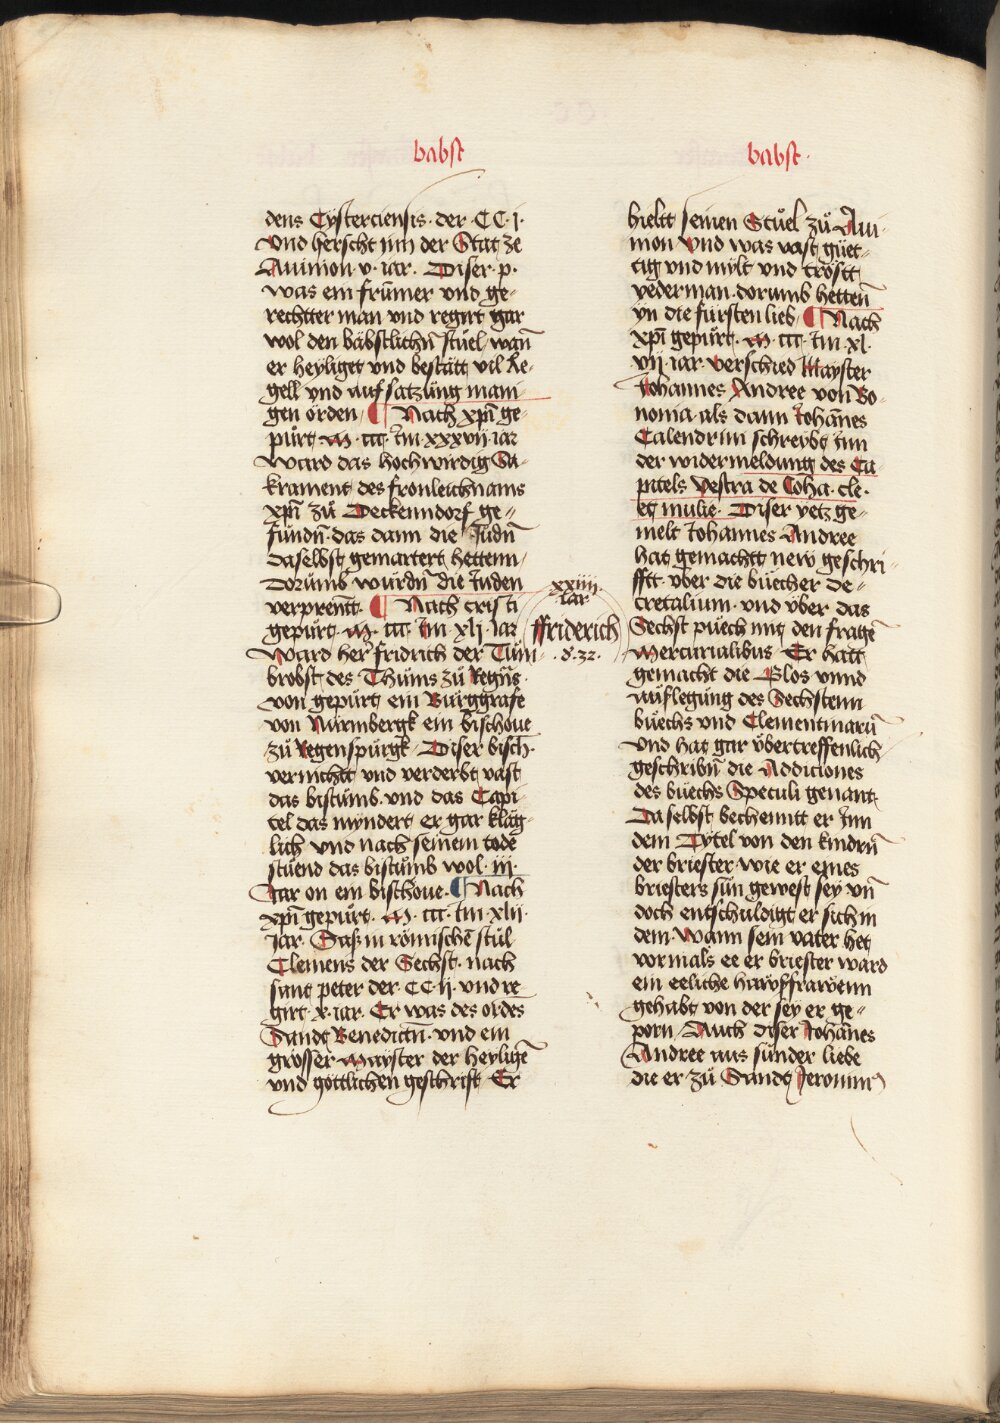 babst
dens Cysterciensis · der · CC · j ·
Vnd herscht inn der Stat ze
Auinion · v · iar · Diser · p ·
was ein frumer vnd ge-
rechtter man vnd regirt gar
wol den bäbstlichn̄ stuel / wan̄
er heyliget vnd bestätt vil Re-
gell vnd auf satzüng mani-
gen örden / ¶ Nach xpī ge-
pürt · M · ccc · Im xxxvij · iar
Ward das hochwirdig Sa-
krament des fronleichnams
xpī zü Deckenndorf ge-
fundn̄ · das dann die Judn̄
daselbst gemartert hettenn /
Dorumb wurdn̄ die Juden
verprennt · ¶ Nach cristi
gepürt · M · ccc · Im xlj · Iar
Ward her fridrich der Tüm-
brobst des Thüms zü Regn̄s ·
von gepürt ein Burggrafe
von Nürmbergk ein bischoue
zü Regenspürgk / Diser bisch ·
vernichtt vnd verderbt vast
das bistumb · vnd das Capi-
tel das myndert er gar kläg-
lich vnd nach seinem tode
stuend das bistumb wol · iij ·
Iar on ein bischoue · ¶ Nach
xpī gepürt · M · ccc · Im · xlij ·
Jar · Saß in römische stul
Clemens der Sechst · nach
sant peter der · CC · ij · vnd re
girt · x · iar · Er was des ordēs
Sandt Benedictn̄ · vnd ein
grosser Mayster der heylige
vnd göttlichen geschrift Er
xxiiij
Iar
ffriderich
· d · 32 ·
babst ·
hieltt seinen Stuel zü Aui-
nion Vnd was vast güet-
tig vnd mylt vnd tröstt
yederman · dorumb hetten̄
yn die fürsten lieb / ¶ Nach
xpī gepürt · M · ccc · Im · xl ·
vij · iar · verschied Mayster
Johannes Andree von Bo-
nonia · als dann Johānes
Calendrini schreybt Jnn
der widermeldung des Ca-
pitels Vestra de Coha · cle ·
et mulie · Diser yetz ge-
melt Johannes Andree
hat gemachtt new geschri-
fftt · vber die büecher de-
cretalium · vnd vber das
Sechst puech mit den frage
Mercurialibus Er hatt
gemacht die Glos vnnd
auflegüng des Sechstenn
büechs vnd Clementinarū
Vnd hat gar übertreffenlich
geschribn̄ die Addiciones
des büechs Speculi genant
Daselbst bechenntt er Jnn
dem Tytel von den kindrn̄
der briester · wie er eines
briesters sun gewest sey vn̄
doch entschuldigt er sich in
dem · Wann sein vater het
vormals ee er briester ward
ein eeliche hawsfrawenn
gehabt von der sey er ge-
porn / Auch diser Johānes
Andree aus sünder liebe
die er zü Sandt Jeronimj